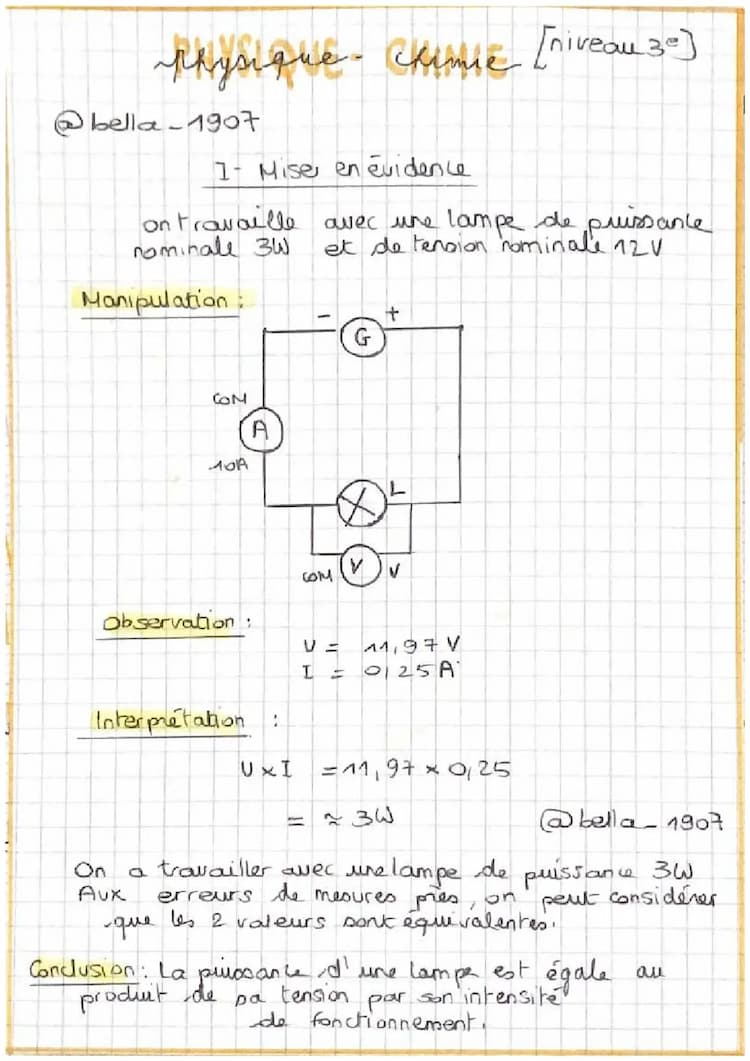 PHYSIQUE - CHIMIE
Physique - chimie [niveau 3e]
@bella_1907
I- Mise en évidence
on travaille avec une lampe de puissance
nominale 3W et de tension nominale 12V
Manipulation :
- +
G
COM
A
10A
L
COM V V
Observation :
U = 11,97 V
I = 0,25 A
Interprétation :
U x I = 11,97 x 0,25
= ≈ 3W
@bella_1907
On a travailler avec une lampe de puissance 3W
Aux erreurs de mesures près, on peut considérer
que les 2 valeurs sont équivalentes.
Conclusion : La puissance d'une lampe est égale au
produit de sa tension par son intensité
de fonctionnement.